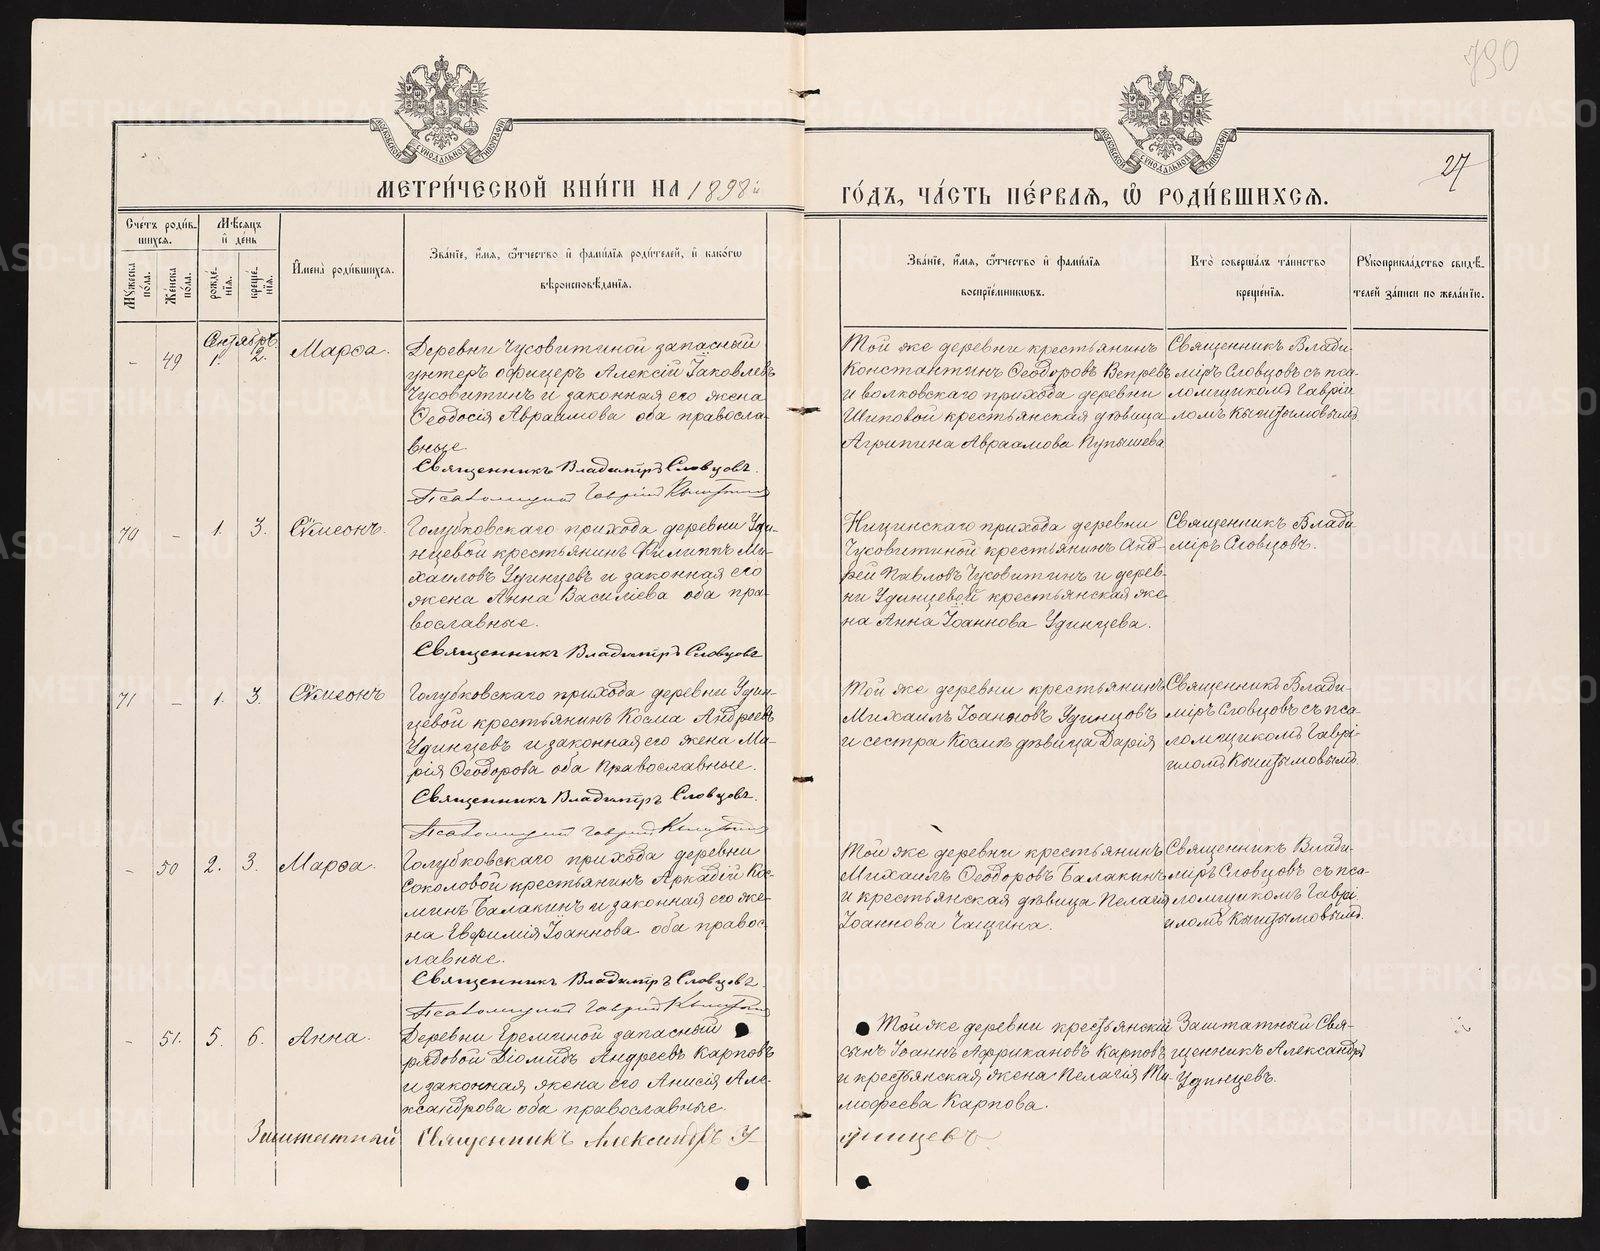 790
27
МОСКОВСКОЙ СѴНОДАЛЬНОЙ ТИПОГРАФІИ
МОСКОВСКОЙ СѴНОДАЛЬНОЙ ТИПОГРАФІИ
МЕТРИ́ЧЕСКОЙ КНИ́ГИ НА 1898й
ГО́ДЪ, ЧА́СТЬ ПЕ́РВАѦ, Ѽ РОДИ́ВШИХСѦ.
Сче́тъ роди́в-
шихся.
Мѣ́сяцъ
и҆ де́нь
Му́жеска по́ла.
Же́нска по́ла.
рожде́-
нїя.
креще́-
нїя.
И҆мена̀ роди́вшихся.
Зва́нїе, и҆́мя, ѻ҆́тчество и҆ фами́лїя роди́телей, и҆ како́гѡ
вѣроисповѣ́данїя.
Зва́нїе, и҆́мя, ѻ҆́тчество и҆ фами́лїя
воспрїе́мниковъ.
Кто̀ соверша́лъ та́инство
креще́нїя.
Рꙋкоприкла́дство свидѣ́-
телей за́писи по жела́нїю.
Сентябрь
- 49 1. 2. Марѳа.
Деревни Чусовитиной запасный
унтеръ офицеръ Алексій Іаковлевъ
Чусовитинъ и законная его жена
Ѳеодосія Авраамова оба правосла-
вные.
Священникъ Владиміръ Словцовъ.
Псаломщикъ Гавріилъ Кыштымовъ
Той же деревни крестьянинъ
Константинъ Ѳеодоровъ Вепревъ
и волковскаго прихода деревни
Шиповой крестьянская дѣвица
Агрипина Авраамова Пупышева
Священникъ Влади-
міръ Словцовъ съ пса-
ломщикомъ Гаврі-
иломъ Кыштымовымъ
70 - 1. 3. Сѵмеонъ.
Голубковскаго прихода деревни Уди-
нцевой крестьянинъ Филиппъ Ми-
хаиловъ Удинцевъ и законная его
жена Анна Василіева оба пра-
вославные.
Священникъ Владиміръ Словцовъ
Ницинскаго прихода деревни
Чусовитиной крестьянинъ Анд-
рей Павловъ Чусовитинъ и дерев-
ни Удинцевой крестьянская же-
на Анна Іоаннова Удинцева.
Священникъ Влади-
міръ Словцовъ.
71 - 1. 3. Сѵмеонъ
Голубковскаго прихода деревни Удин-
цевой крестьянинъ Косма Андреевъ
Удинцевъ и законная его жена Ма-
рія Ѳеодорова оба православные.
Священникъ Владиміръ Словцовъ.
Псаломщикъ Гавріилъ Кыштымовъ
Той же деревни крестьянинъ
Михаилъ Іоанновъ Удинцовъ
и сестра Космы дѣвица Дарія
Священникъ Влади-
міръ Словцовъ съ пса-
ломщикомъ Гаврі-
иломъ Кыштымовымъ.
- 50 2. 3. Марѳа.
Голубковскаго прихода деревни
Соколовой крестьянинъ Аркадій Кос-
минъ Балакинъ и законная его же-
на Евфимія Іоаннова оба правос-
лавные.
Священникъ Владиміръ Словцовъ.
Псаломщикъ Гавріилъ Кыштымовъ
Той же деревни крестьянинъ
Михаилъ Ѳеодоровъ Балакинъ
и крестьянская дѣвица Пелагія
Іоаннова Чащина.
Священникъ Влади-
міръ Словцовъ съ пса-
ломщикомъ Гаврі-
иломъ Кыштымовымъ.
- 51. 5. 6. Анна.
Деревни Ереминой запасный
рядовой Діомидъ Андреевъ Карповъ
и законная жена его Анисія Але-
ксандрова оба православные.
Той же деревни крестьянскій
сынъ Іоаннъ Африкановъ Карповъ
и крестьянская жена Пелагія Ти-
мофеева Карпова.
Заштатный Свя-
щенникъ Александръ
Удинцевъ.
Заштатный Священникъ Александръ У-
динцевъ